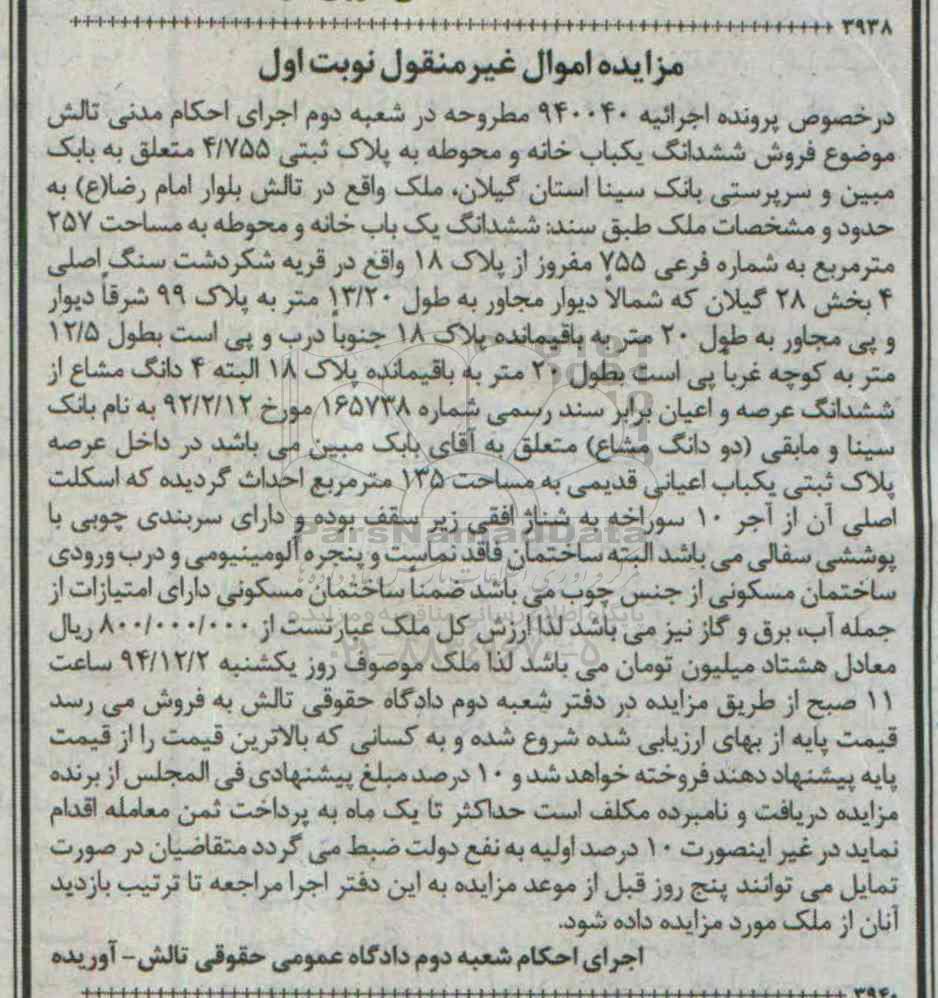 ۳۹۳۸
مزایده اموال غیرمنقول نوبت اول
درخصوص پرونده اجرائیه ۹۴۰۰۴۰ مطروحه در شعبه دوم اجرای احکام مدنی تالش
موضوع فروش ششدانگ یکباب خانه و محوطه به پلاک ثبتی ۴/۷۵۵ متعلق به بابک
مبین و سرپرستی بانک سینا استان گیلان، ملک واقع در تالش بلوار امام رضا(ع) به
حدود و مشخصات ملک طبق سند: ششدانگ یک باب خانه و محوطه به مساحت ۲۵۷
مترمربع به شماره فرعی ۷۵۵ مفروز از پلاک ۱۸ واقع در قریه شکردشت سنگ اصلی
۴ بخش ۲۸ گیلان که شمالاً دیوار مجاور به طول ۱۳/۲۰ متر به پلاک ۹۹ شرقاً دیوار
و پی مجاور به طول ۲۰ متر به باقیمانده پلاک ۱۸ جنوباً درب و پی است بطول ۱۲/۵
متر به کوچه غرباً پی است بطول ۲۰ متر به باقیمانده پلاک ۱۸ البته ۴ دانگ مشاع از
ششدانگ عرصه و اعیان برابر سند رسمی شماره ۱۶۵۷۳۸ مورخ ۹۲/۲/۱۲ به نام بانک
سینا و مابقی (دو دانگ مشاع) متعلق به آقای بابک مبین می باشد در داخل عرصه
پلاک ثبتی یکباب اعیانی قدیمی به مساحت ۱۳۵ مترمربع احداث گردیده که اسکلت
اصلی آن از آجر ۱۰ سوراخه به شناژ افقی زیر سقف بوده و دارای سربندی چوبی با
پوششی سفالی می باشد البته ساختمان فاقد نماست و پنجره آلومینیومی و درب ورودی
ساختمان مسکونی از جنس چوب می باشد ضمناً ساختمان مسکونی دارای امتیازات از
جمله آب، برق و گاز نیز می باشد لذا ارزش کل ملک عبارتست از ۸۰۰/۰۰۰/۰۰۰ ریال
معادل هشتاد میلیون تومان می باشد لذا ملک موصوف روز یکشنبه ۹۴/۱۲/۲ ساعت
۱۱ صبح از طریق مزایده در دفتر شعبه دوم دادگاه حقوقی تالش به فروش می رسد
قیمت پایه از بهای ارزیابی شده شروع شده و به کسانی که بالاترین قیمت را از قیمت
پایه پیشنهاد دهند فروخته خواهد شد و ۱۰ درصد مبلغ پیشنهادی فی المجلس از برنده
مزایده دریافت و نامبرده مکلف است حداکثر تا یک ماه به پرداخت ثمن معامله اقدام
نماید در غیر اینصورت ۱۰ درصد اولیه به نفع دولت ضبط می گردد متقاضیان در صورت
تمایل می توانند پنج روز قبل از موعد مزایده به این دفتر اجرا مراجعه تا ترتیب بازدید
آنان از ملک مورد مزایده داده شود.
اجرای احکام شعبه دوم دادگاه عمومی حقوقی تالش- آوریده
۳۹۴۰
ParsNamadData